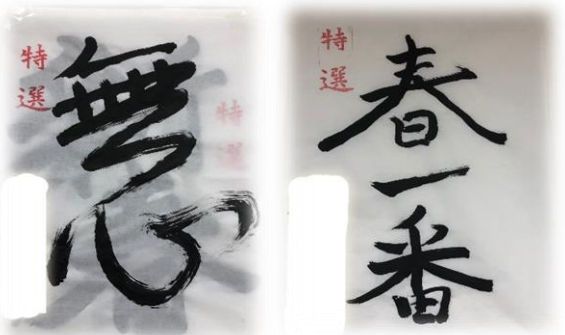 特選
無心
特選
特選
春一番